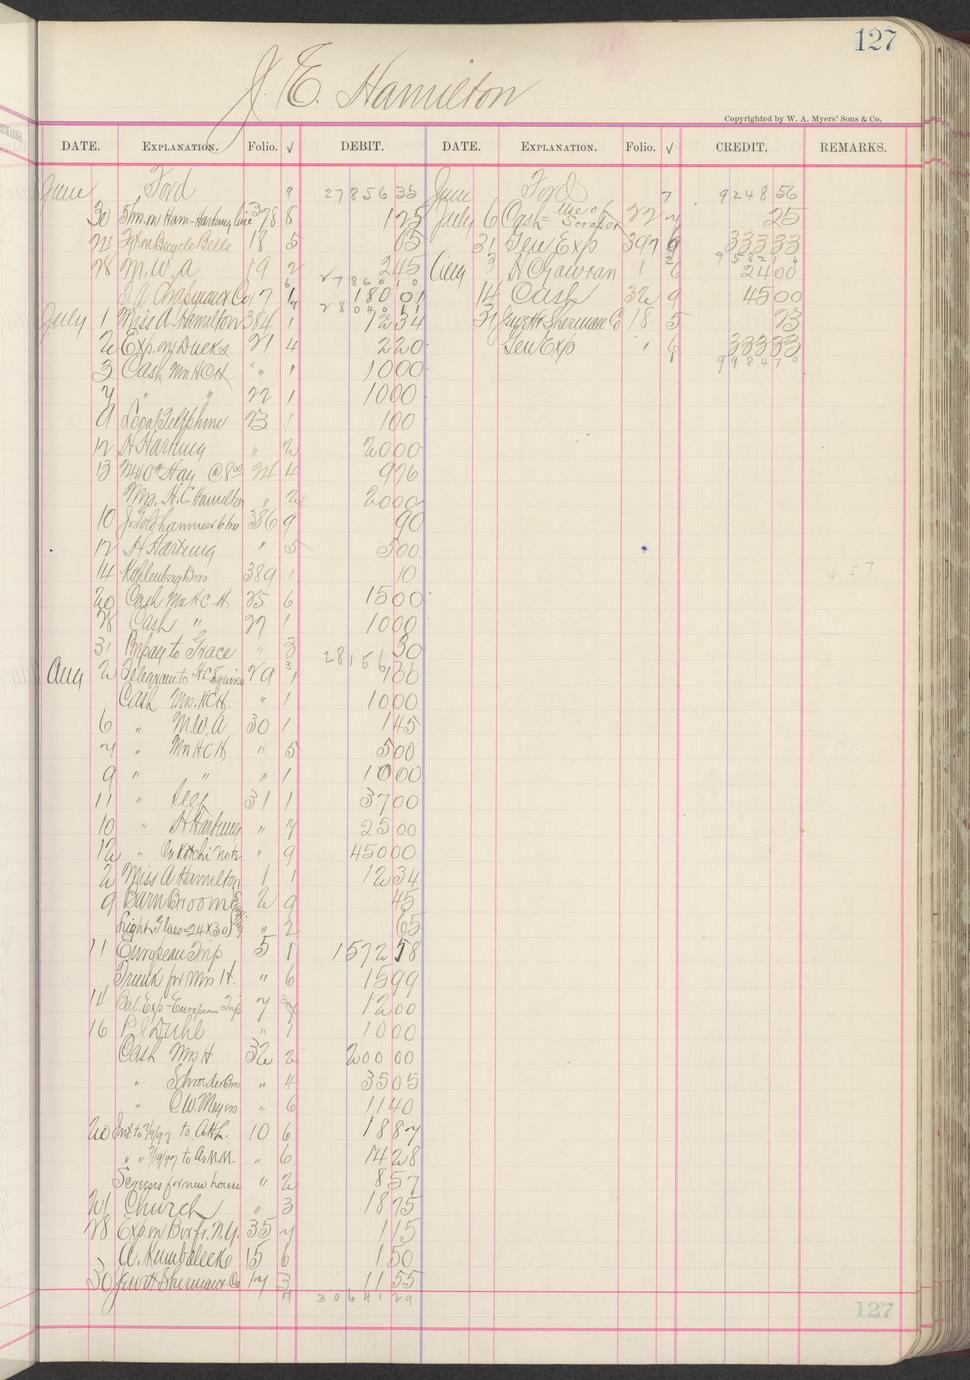 127
J. E. Hamilton
Copyrighted by W. A. Myers' Sons & Co.
DATE. EXPLANATION. Folio. √ DEBIT. DATE. EXPLANATION. Folio. √ CREDIT. REMARKS.
June Ford 9 27856 35 June Ford 7 9248 56
30 5hm on Ham-Hartung line 378 8 1 25 July 6 Cash = Use of Scraper 22 25
Frt on Bicycle Bells 18 5 65 31 Gen Exp 397 333 33
28 M.W.A 19 2 2 45 Aug 3 H Gawran 1 6 24 00
17 180 01 14 Cash 32 9 45 00
July 1 Miss A Hamilton 384 1 12 34 31 Jewett Sherman Co 18 5 23
2 Exp. on Ducks 21 4 2 20 Gen Exp " 333 33
3 Cash Mrs HCH " 1 10 00 9984 70
7 " " 22 1 10 00
9 Local Telephone 23 1 1 00
12 H Hartung " 2 20 00
13 2440# Hay @ 8.00 24 4 9 76
Mrs. H. C. Hamilton " 2 20 00
10 J. Goldhammer 386 9 90
12 H Hartung " 5 5 00
14 Kahlenberg Bros 389 1 10
20 Cash Mrs H C H 25 6 15 00
28 Cash " 27 1 10 00
31 to Grace " 3 30
28156
Aug 2 Telegram to H C 29 1 1 36
Cash Mrs. HCH. " 1 10 00
6 " M.W.A 30 1 1 45
7 " Mrs HCH " 5 5 00
9 " " " 1 10 00
11 " Self 31 1 37 00
10 " H Hartung " 7 25 00
12 " note " 9 450 00
2 Miss A Hamilton 1 1 12 34
9 Barn Broom 2 9 45
Light Glass = 24x30 " 2 65
11 European Trip 5 1 1572 58
Trunk for Mrs H. " 6 15 99
14 Bal. Exp - European Trip 7 12 00
16 " 1 10 00
Cash Mrs H 32 2 200 00
" Schroeder Bros " 4 35 05
" C W. Meyers " 6 11 40
20 Int. to 7/9/97 to A.H. 10 6 18 87
" " 7/9/97 to " 6 14 28
Screens for new house " 2 8 57
Church " 3 18 75
28 Exp. on Box fr. N.Y. 35 1 15
15 6 1 50
30 Jewett Sherman Co 17 3 11 55
30641 29
127